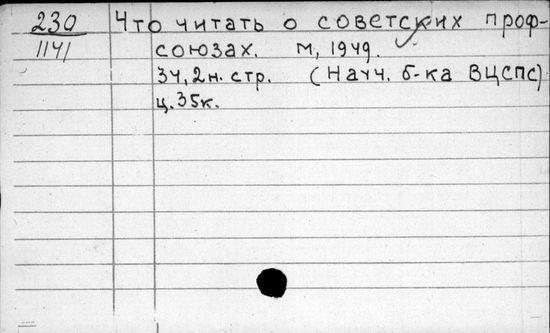 230 Что читать о советских проф-
1141 союзах. М, 1949.
34, 2 н. стр. (Науч. б-ка ВЦСПС)
ц. 35к.